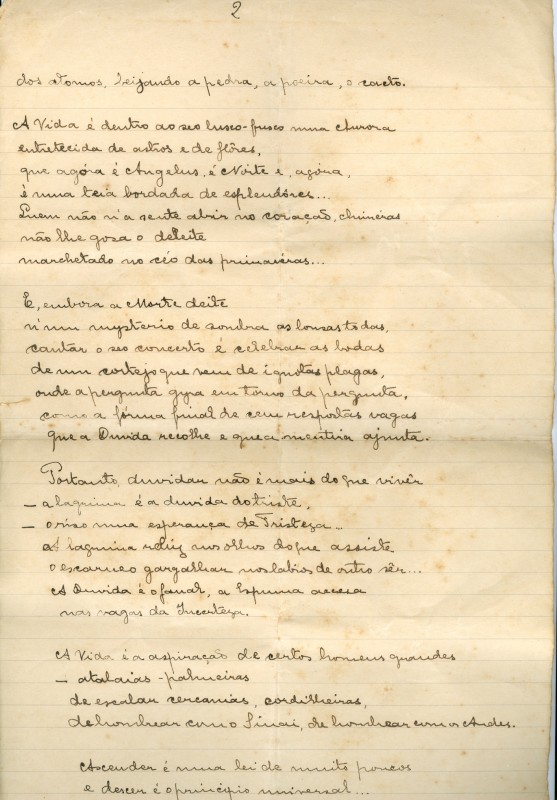 2
dos atomos, beijando a pedra, a poeira, o cacto.
A Vida é dentro ao seo lusco-fusco uma Aurora
entretecida de astros e de flôres,
que agóra é Angelus, é Noite e, agóra,
é uma teia bordada de esplendôres...
Quem não n'a sente abrir no coração, chiméras
não lhe gosa o deleite
marchetado no céo das primaveras...
E, embora a Morte deite
n'um mysterio de sombra as lousas todas,
cantar o seo concerto é celebrar as bodas
de um cortejo que vem de ignotas plagas,
onde a pergunta gyra em torno da pergunta,
como a fórma final de cem respostas vagas
que a Duvida recolhe e que a mentira ajunta.
Portanto, duvidar não é mais do que vivêr
— a lagrima é a duvida do triste,
— o riso uma esperança de Tristeza...
A lagrima reluz nos olhos do que assiste
o escarneo gargalhar nos labios de outro sêr...
A Duvida é o fanal, a Espuma accesa
nas vagas da Incerteza.
A Vida é a aspiração de certos homens grandes
— atalaias-palmeiras
de escalar cercanias, cordilheiras,
de hombrear com o Sinai, de hombrear com os Andes.
Ascender é uma lei de muito poucos
e descer é o principio universal...